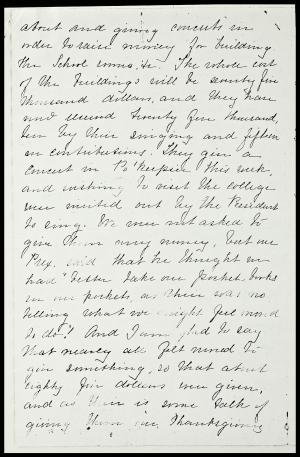 about and giving concerts in
order to raise money for building
the School rooms, etc. The whole cost
of the buildings will be seventy five
thousand dollars, and they have
now secured twenty five thousand,
ten by their singing and fifteen
in contributions. They give a
concert in Po'keepsie this week,
and wishing to visit the college
were invited out by the President
to sing. We were not asked to
give them any money, but our
Prex. said that he thought we
had "better take our pocket-books
in our pockets, as there was no
telling what we might feel moved
to do." And I am glad to say
that nearly all felt moved to
give something, so that about
eighty five dollars were given,
and as there is some talk of
giving them our Thanksgiving